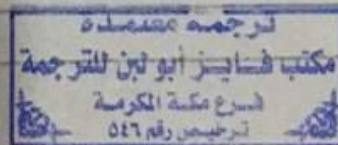 ترجمه معتمده
مكتب فايز أبو لبن للترجمة
فرع مكة المكرمة
ترخيص رقم ٥٤٦